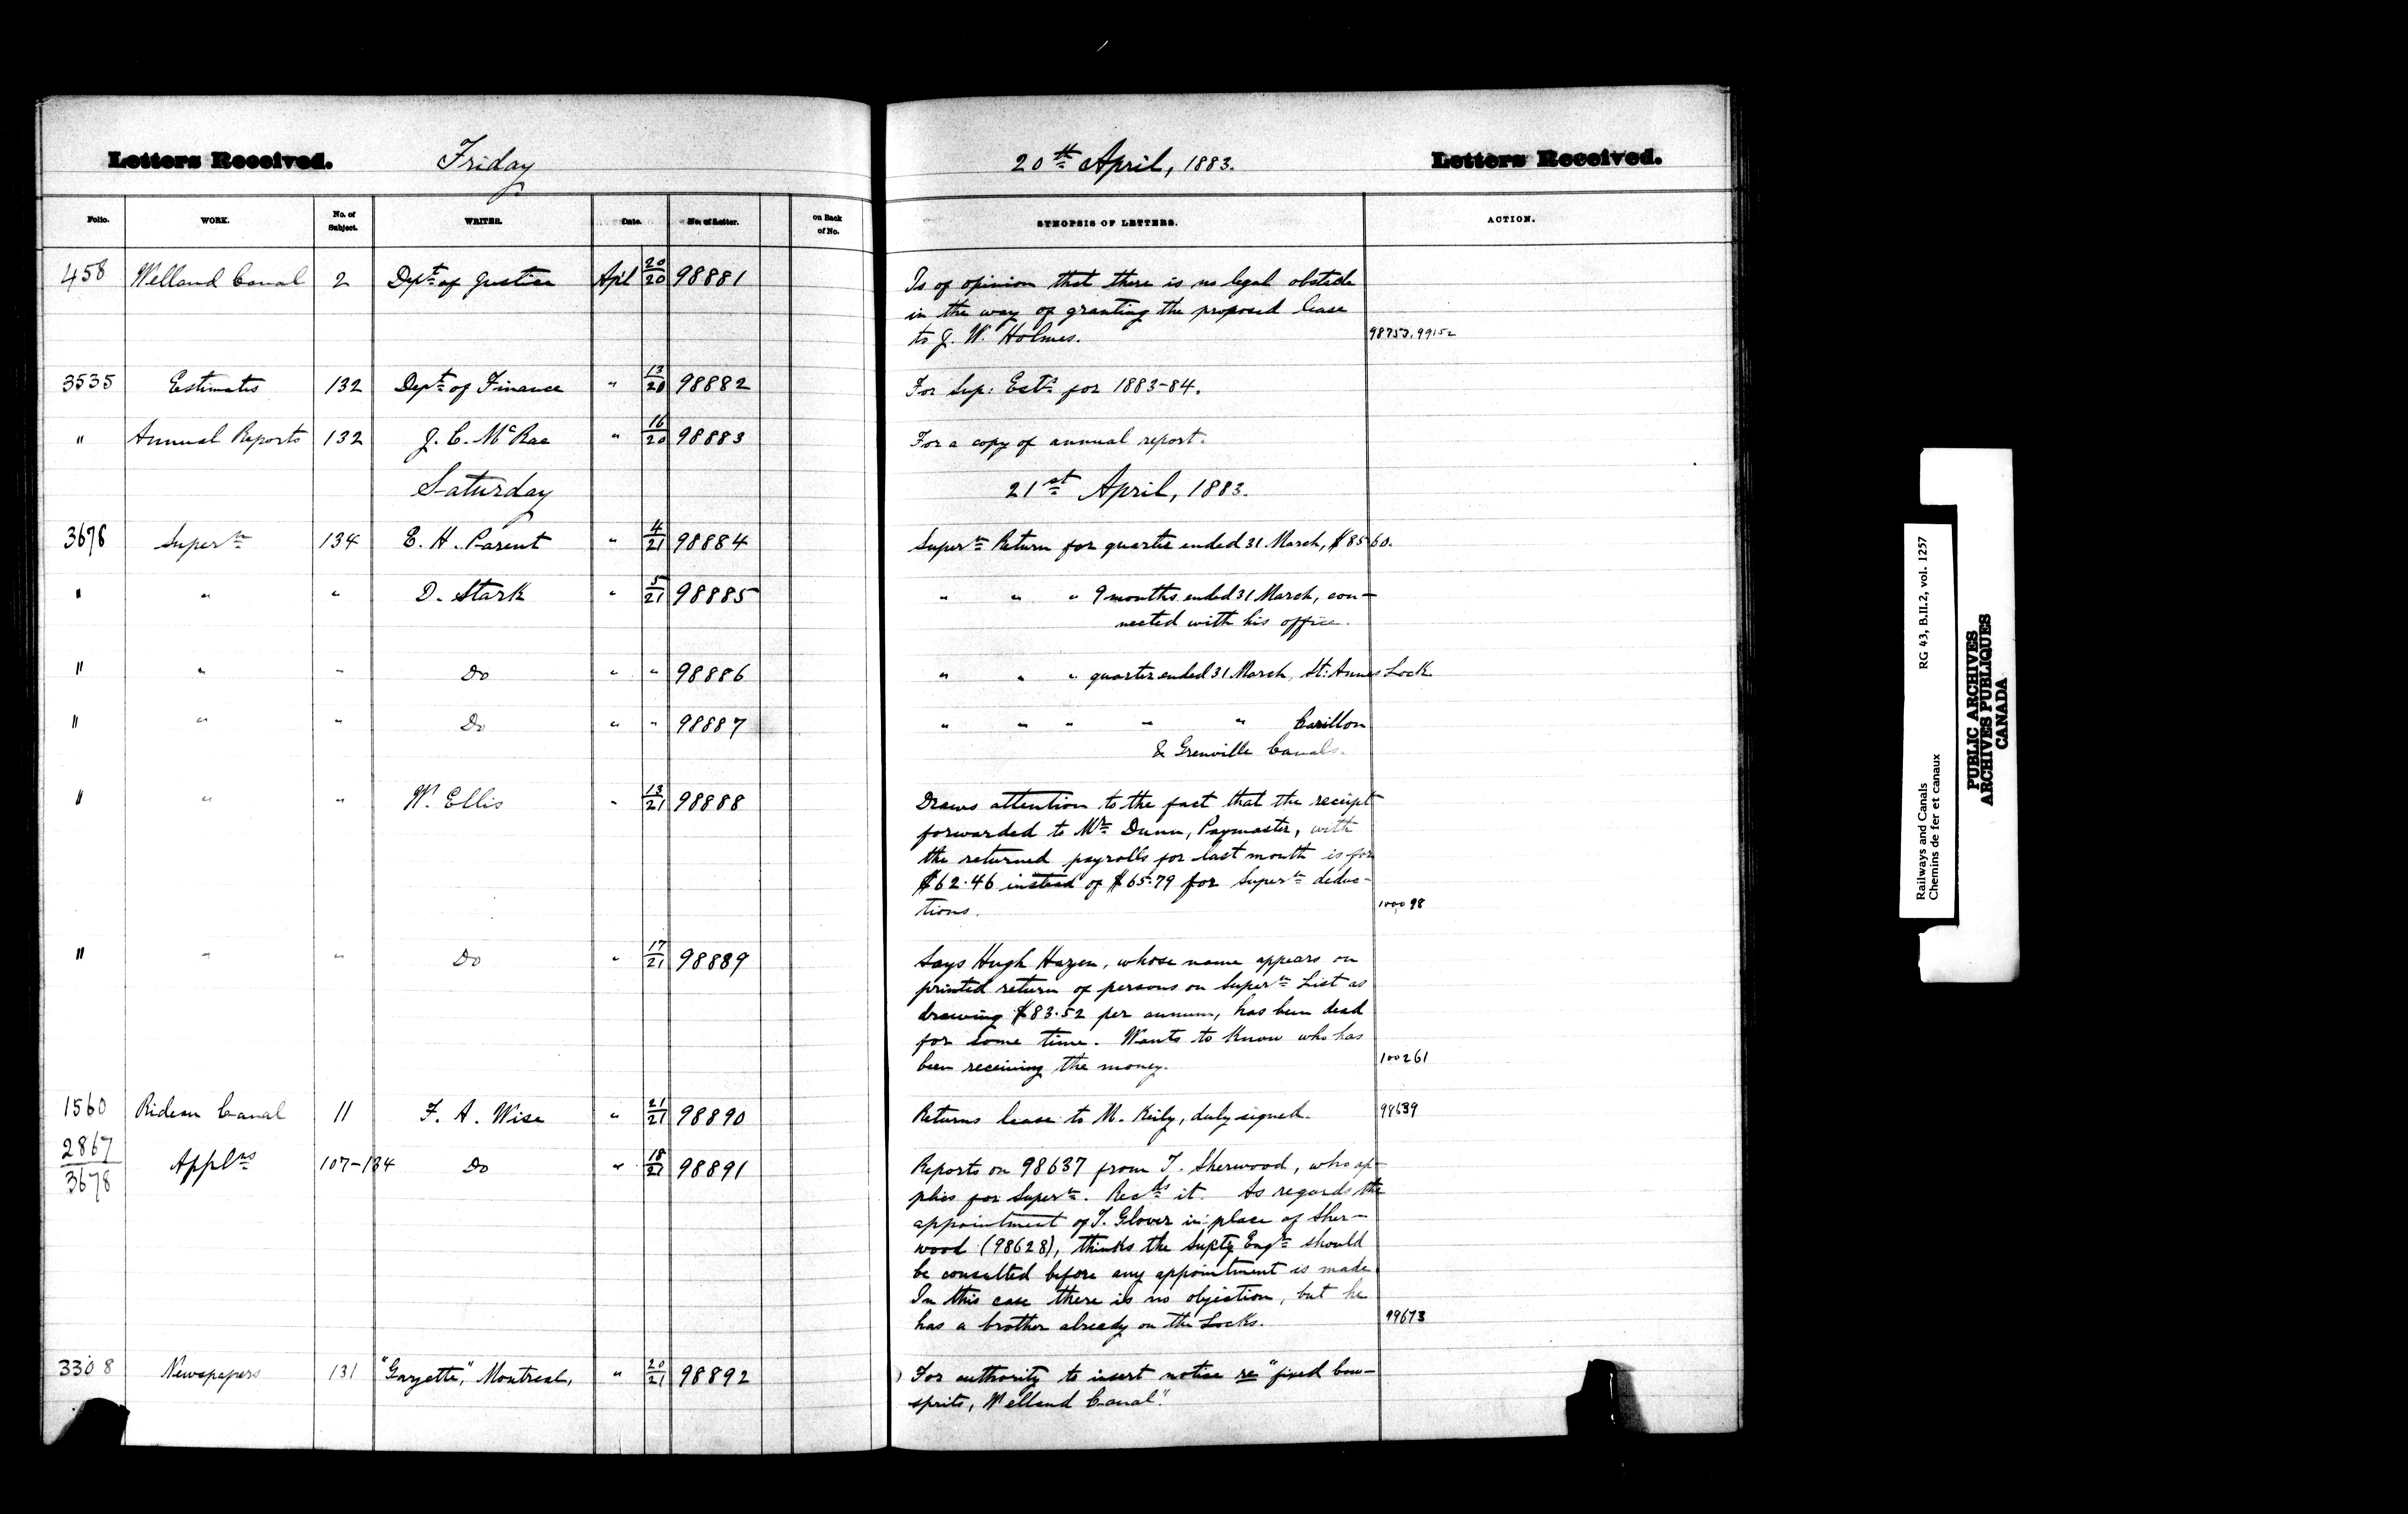 Letters Received. Friday 20th April, 1883. Letters Received.
Folio. WORK. No. of Subject. WRITER. Date. No. of Letter. on Back of No. SYNOPSIS OF LETTERS. ACTION.
458 Welland Canal 2 Dept of Justice Apl 20/20 98881 Is of opinion that there is no legal obstacle
in the way of granting the proposed lease
to J. W. Holmes. 98753. 99152
3535 Estimates 132 Dept of Finance " 13/20 98882 For Sup: Ests for 1883-84.
" Annual Reports 132 J. C. McRae " 16/20 98883 For a copy of annual report.
Saturday 21st April, 1883.
3678 Supern 134 E. H. Parent " 4/21 98884 Supern Return for quarter ended 31 March, $85.60.
" " " D. Stark " 5/21 98885 " " " 9 months ended 31 March, con-
nected with his office.
" " " Do " " 98886 " " " quarter ended 31 March, St: Annes Lock
" " " Do " " 98887 " " " " " Carillon
& Grenville Canals.
" " " W. Ellis " 13/21 98888 Draws attention to the fact that the receipt
forwarded to Mr. Dunn, Paymaster, with
the returned payrolls for last month is for
$62.46 instead of $65.79 for Supern deduc-
tions. 100098
" " " Do " 17/21 98889 Says Hugh Hazen, whose name appears on
printed return of persons on Supern List as
drawing $83.52 per annum, has been dead
for some time. Wants to know who has
been receiving the money. 100261
1560 Rideau Canal 11 F. A. Wise " 21/21 98890 Returns lease to M. Keily, duly signed. 98639
2867/3678 Applns 107-134 Do " 18/21 98891 Reports on 98637 from T. Sherwood, who ap-
plies for Supern. Recds it. As regards the
appointment of T. Glover in place of Sher-
wood (98628), thinks the Suptg Engr should
be consulted before any appointment is made.
In this case there is no objection, but he
has a brother already on the Locks. 99673
3308 Newspapers 131 "Gazette," Montreal, " 20/21 98892 For authority to insert notice re "fixed bow-
sprits, Welland Canal".
Railways and Canals RG 43, B.II.2, vol. 1257
Chemins de fer et canaux
PUBLIC ARCHIVES
ARCHIVES PUBLIQUES
CANADA